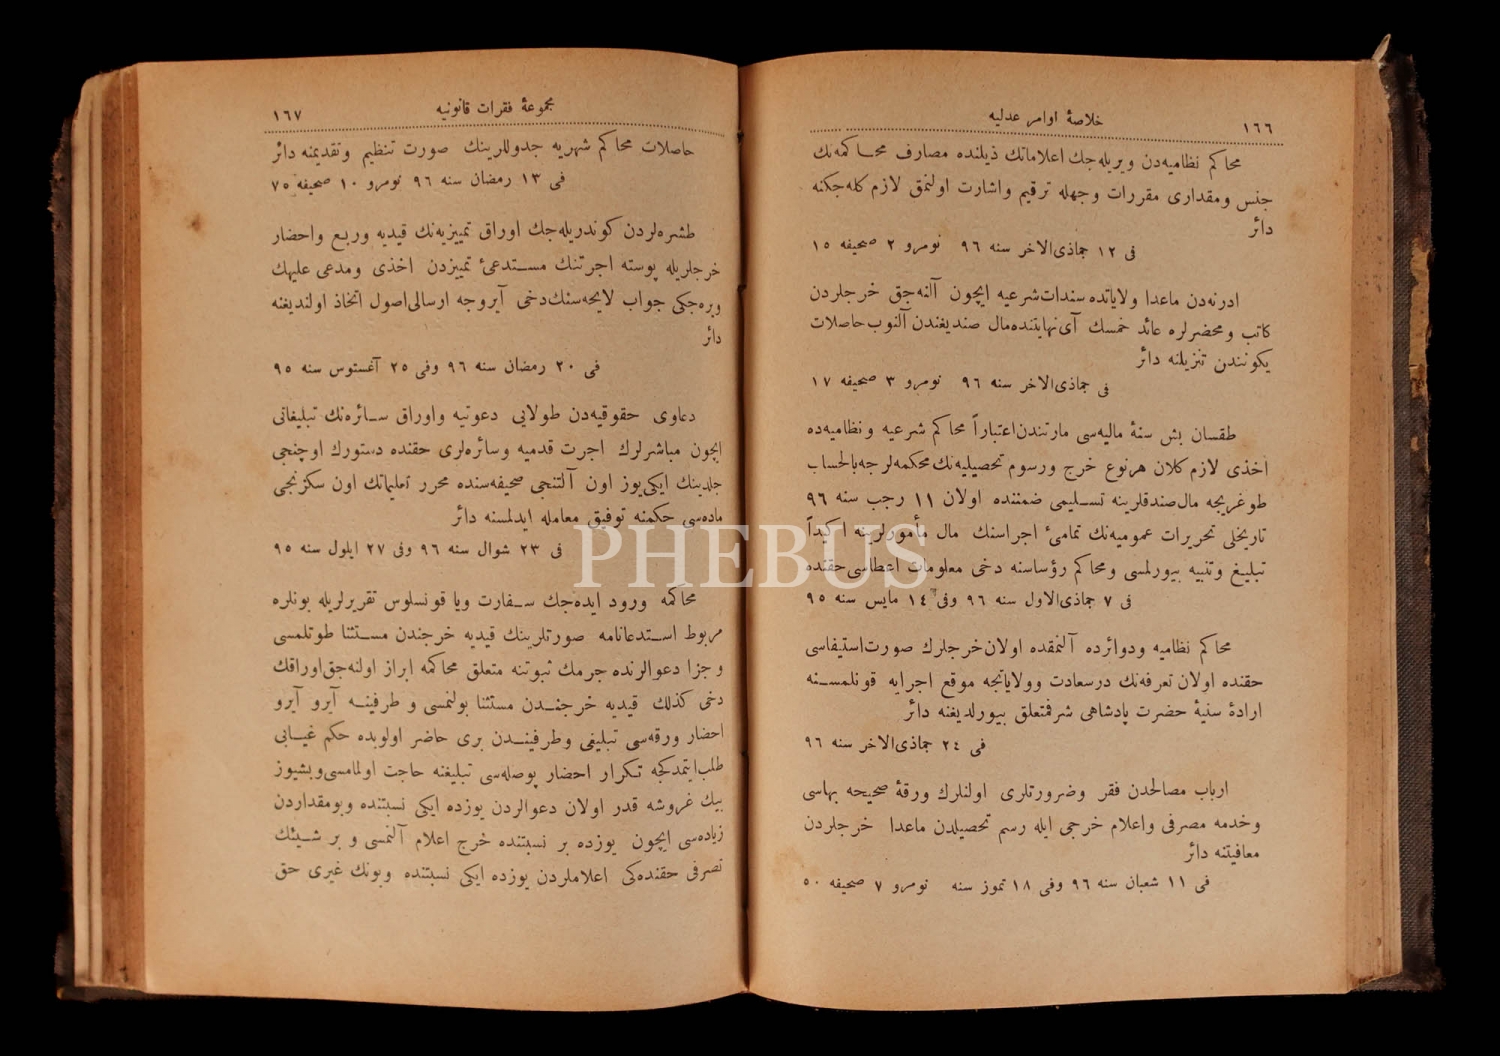 ١٦٦
خلاصۀ اوامر عدلیه
محاكم نظامیه‌دن ویریله‌جك اعلاماتك ذیلنده مصارف محـاكمه‌نك
جنس ومقداری مقررات وجهله ترقیم واشارت اولنمق لازم كله‌جكنه
دائر
فی ١٢ جماذی‌الاخر سنه ٩٦ نومرو ٢ صحیفه ١٥
ادرنه‌دن ماعدا ولایاتده سندات‌شرعیه ایچون آلنه‌جق خرجلردن
كاتب ومحضرلره عائد خمسك آی‌نهایتنده‌مال صندیغندن آلنوب‌حاصلات
یكونندن تنزیلنه دائر
فی جماذی‌الاخر سنه ٩٦ نومرو ٣ صحیفه ١٧
طقسان بش سنۀ مالیه‌سی مارتندن‌اعتباراً محاكم شرعیه ونظامیه‌ده
اخذی لازم كلان هرنوع خرج ورسوم تحصیلیه‌نك‌محكمه‌لرجه‌بالحساب
طوغریجه مال‌صندقلرینه تسـلیمی ضمننده اولان ١١ رجب سنه ٩٦
تاریخلی تحریرات عمومیه‌نك تمامیٔ اجراسنك مال مأمورلرینه اكیداً
تبلیغ وتنبیه بیورلمسی ومحاكم رؤساسنه دخی معلومات اعطاسی‌حقنده
فی ٧ جماذی‌الاول سنه ٩٦ وفی ١٤ مایس سنه ٩٥
محاكم نظامیه ودوائرده آلنمقده اولان‌خرجلرك صورت‌استیفاسی
حقنده اولان تعرفه‌نك درسعادت وولایاتجه موقع اجرایه قونلمسـنه
ارادۀ سنیۀ حضرت پادشاهی شرفتعلق بیورلدیغنه دائر
فی ٢٤ جماذی‌الاخر سنه ٩٦
ارباب مصالحدن فقر وضرورتلری اولنلرك ورقۀ صحیحه بهاسی
وخدمه مصرفی واعلام خرجی ایله رسم تحصیلدن ماعدا خرجلردن
معافیتنه دائر
فی ١١ شعبان سنه ٩٦ وفی ١٨ تموز سنه نومرو ٧ صحیفه ٥٠
مجموعۀ فقرات قانونیه
١٦٧
حاصلات محاكم شهریه جدوللرینك صورت تنظیم وتقدیمنه دائر
فی ١٣ رمضان سنه ٩٦ نومرو ١٠ صحیفه ٧٥
طشره‌لردن كوندریله‌جك اوراق تمییزیه‌نك قیدیه وربع واحضار
خرجلریله پوسته اجرتنك مسـتدعیٔ تمییزدن اخذی ومدعی علیهك
ویره‌جكی جواب لایحه‌سنك‌دخی آیروجه ارسالی‌اصول اتخاذ اولندیغنه
دائر
فی ٢٠ رمضان سنه ٩٦ وفی ٢٥ آغستوس سنه ٩٥
دعاوی حقوقیه‌دن طولایی دعوتیه واوراق سـائره‌نك تبلیغاتی
ایچون مباشرلرك اجرت قدمیه وسائره‌لری حقنده دستورك اوچنجی
جلدینك ایكی‌یوز اون آلتنجی صحیفه‌سنده محرر تعلیماتك اون سكزنجی
ماده‌سی حكمنه توفیق معامله ایدلمسنه دائر
فی ٢٣ شوال سنه ٩٦ وفی ٢٧ ایلول سنه ٩٥
محاكمه ورود ایده‌جك سـفارت ویا قونسلوس تقریرلریله بونلره
مربوط اسـتدعانامه صورتلرینك قیدیه خرجندن مسـتثنا طوتلمسی
وجزا دعوالرنده جرمك ثبوتنه متعلق محاكمه ابراز اولنه‌جق‌اوراقك
دخی كذلك قیدیه خرجنـدن مستثنا بولنمسی وطرفینـه آیرو آیرو
احضار ورقه‌سی تبلیغی وطرفینـدن بری حاضر اولوبده حكم غیـابی
طلب‌ایتمدكجه تـكرار احضار پوصله‌سی تبلیغنه حاجت اولمامسی‌وبشیوز
بیك غروشه قدر اولان دعوالردن یوزده ایكی نسبتنده وبومقداردن
زیاده‌سی ایچون یوزده بر نسبتنده خرج اعلام آلنمسی و بر شـیئك
تصرفی حقنده‌كی اعلاملردن یوزده ایكی نسبتنده وبونك غیری حق
PHEBUS